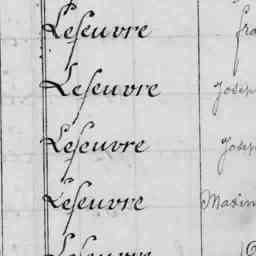 Lefeuvre fra
Lefeuvre Josep
Lefeuvre Josep
Lefeuvre Maxim
Lefeuvre